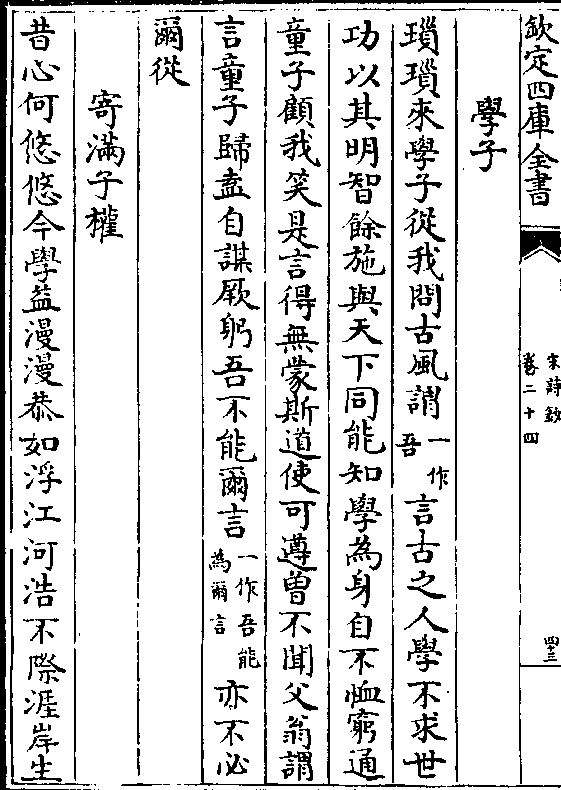 欽定四庫全書
宋詩鈔
卷二十四
四十三
學子
瑣瑣來學子從我問古風謂一作吾言古之人學不求世
功以其明智餘施與天下同能知學為身自不恤窮通
童子顧我笑是言得無蒙斯道使可遵曾不聞父翁謂
言童子歸盍自謀厥躬吾不能爾言一作吾能為爾言亦不必
爾從
寄滿子權
昔心何悠悠今學益漫漫恭如浮江河浩不際涯岸生